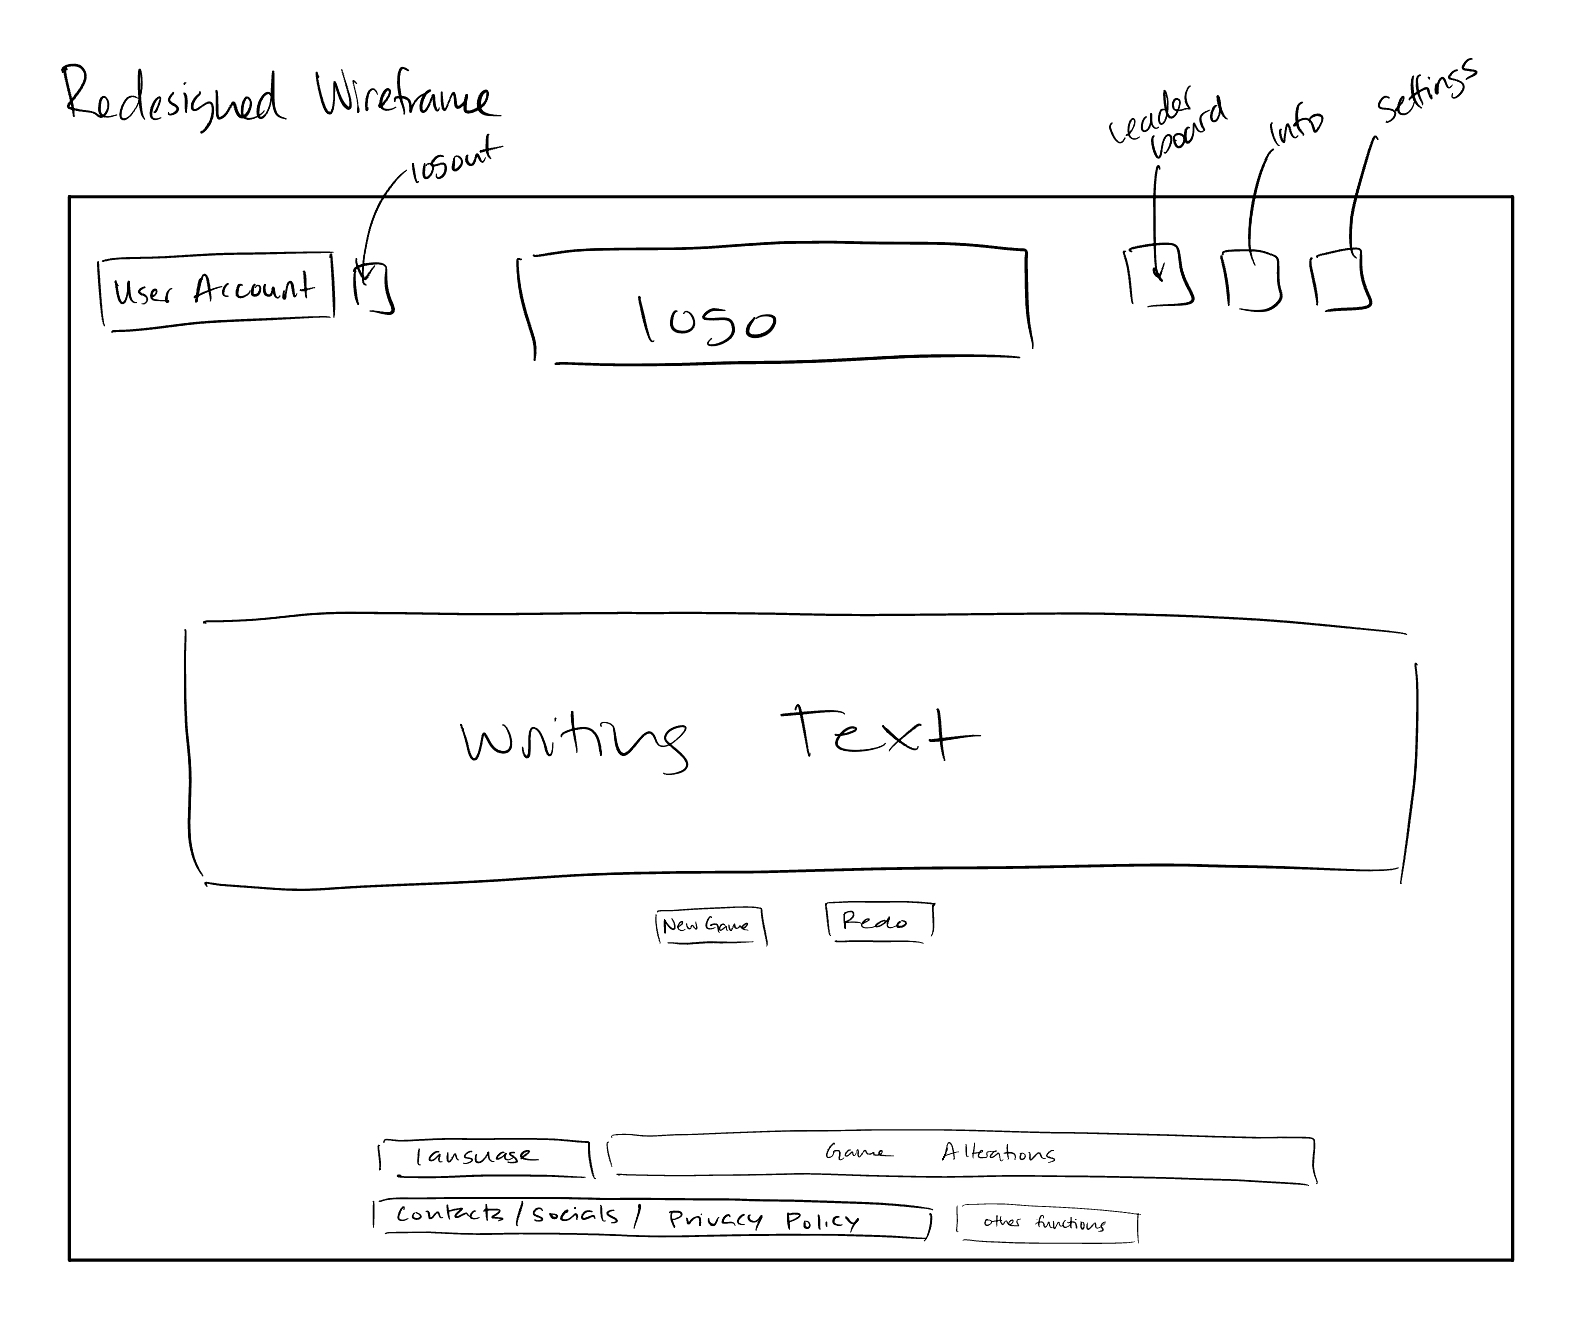 Redesigned Wireframe
logout
Leader
board
Info
Settings
User Account
logo
Writing Text
New Game
Redo
language
Game Alterations
Contacts / Socials / Privacy Policy
other functions